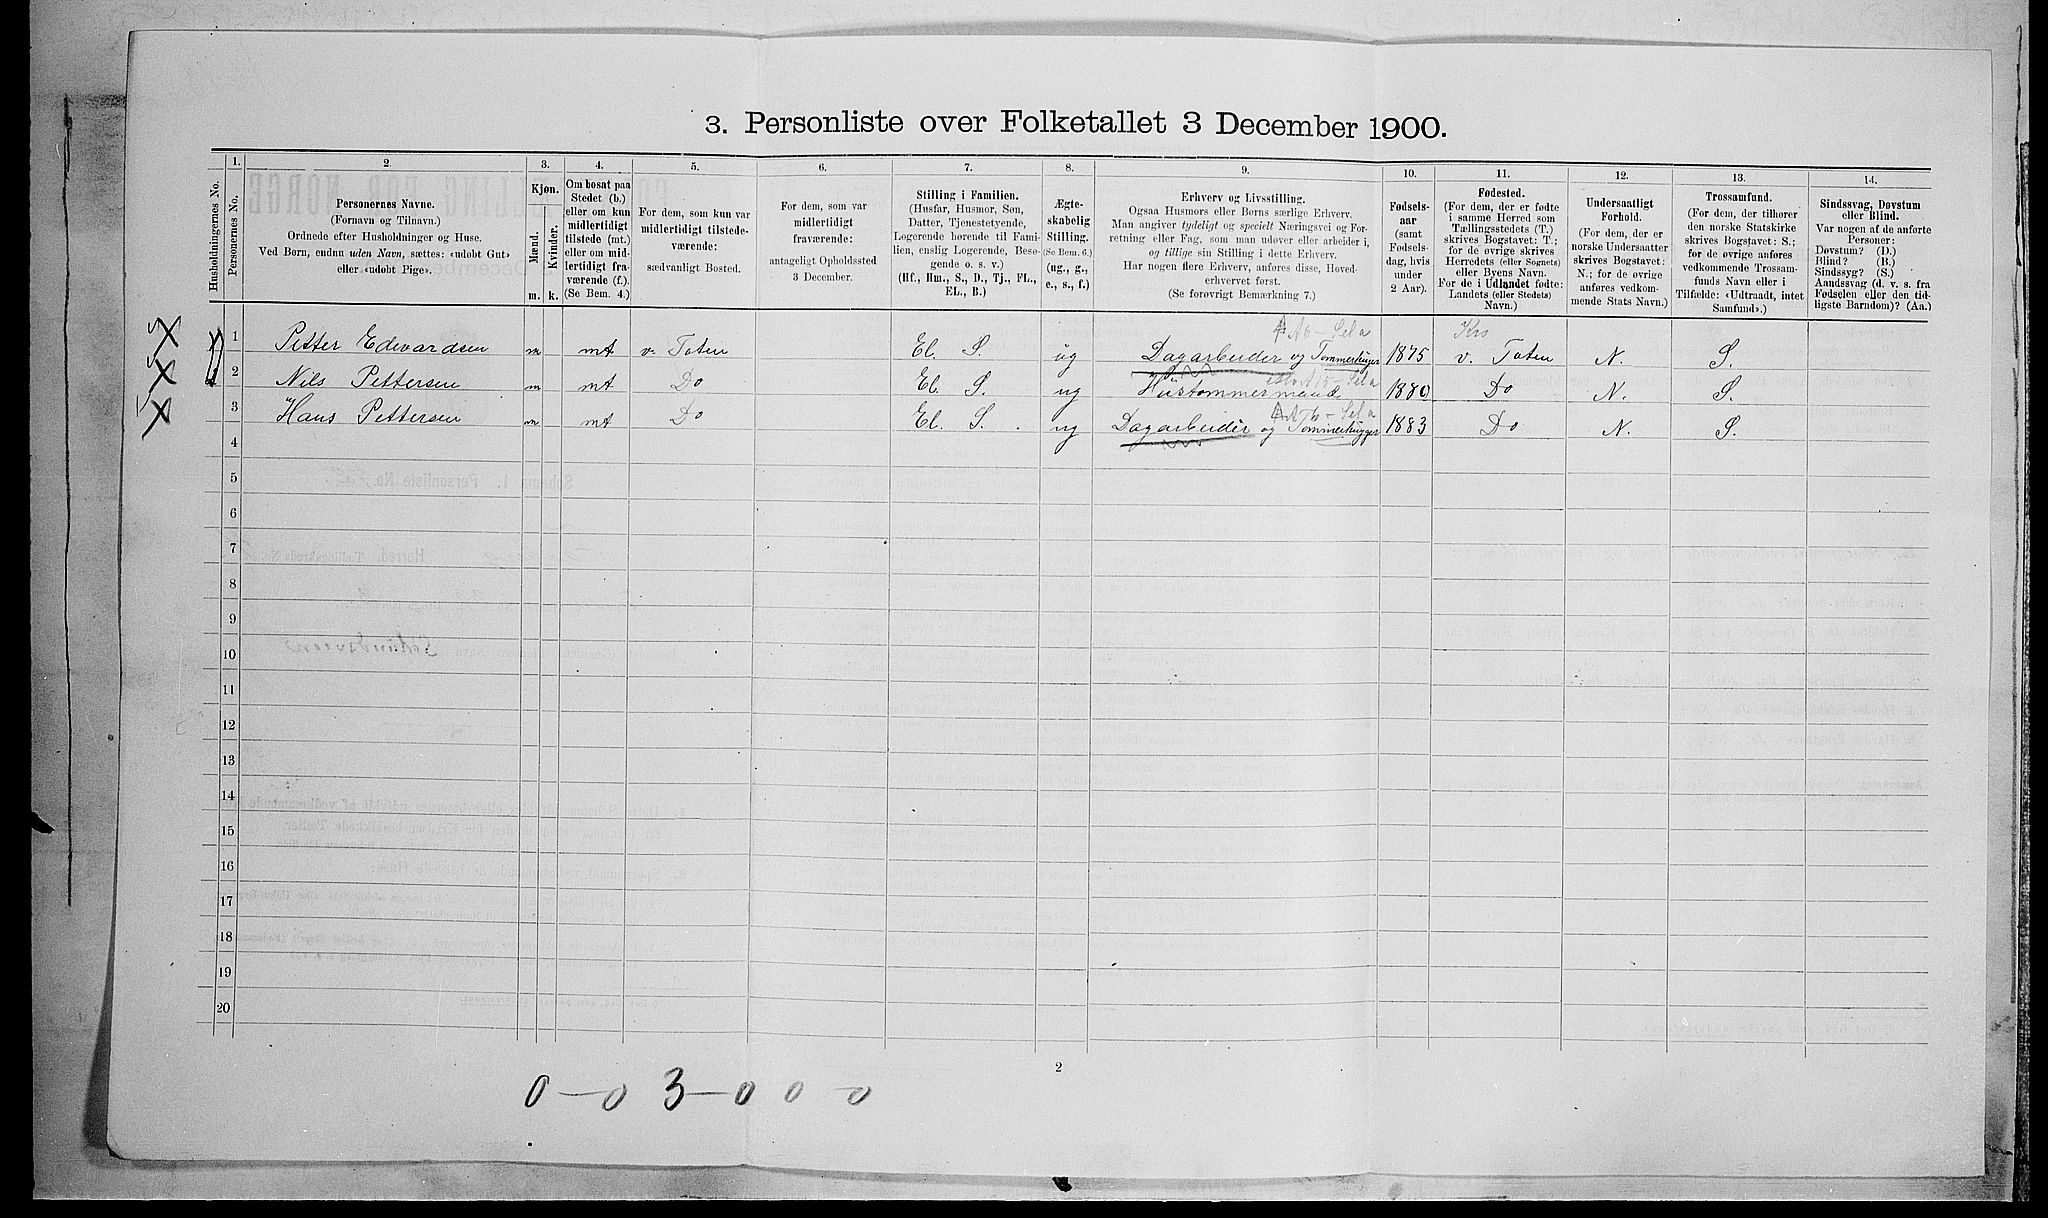 3. Personliste over Folketallet 3 December 1900.
Husholdningernes No.
1.
Personernes No.
2.
Personernes Navne.
(Fornavn og Tilnavn.)
Ordnede efter Husholdninger og Huse.
Ved Børn, endnu uden Navn, sættes: «udøbt Gut»
eller «udøbt Pige».
3.
Kjøn.
Mænd.
Kvinder.
m. k.
4.
Om bosat paa
Stedet (b.)
eller om kun
midlertidigt
tilstede (mt.)
eller om mid-
lertidigt fra-
værende (f.).
(Se Bem. 4.)
5.
For dem, som kun var
midlertidigt tilstede-
værende:
sædvanligt Bosted.
6.
For dem, som var
midlertidigt
fraværende:
antageligt Opholdssted
3 December.
7.
Stilling i Familien.
(Husfar, Husmor, Søn,
Datter, Tjenestetyende,
Logerende hørende til Fami-
lien, enslig Logerende, Besø-
gende o. s. v.)
(Hf., Hm., S., D., Tj., FL.,
EL., B.)
8.
Ægte-
skabelig
Stilling.
(Se Bem. 6.)
(ug., g.,
e., s., f.)
9.
Erhverv og Livsstilling.
Ogsaa Husmors eller Børns særlige Erhverv.
Man angiver tydeligt og specielt Næringsvei og For-
retning eller Fag, som man udøver eller arbeider i,
og tillige sin Stilling i dette Erhverv.
Har nogen flere Erhverv, anføres disse, Hoved-
erhvervet først.
(Se forøvrigt Bemærkning 7.)
10.
Fødsels-
aar
(samt
Fødsels-
dag, hvis
under
2 Aar).
11.
Fødested.
(For dem, der er fødte
i samme Herred som
Tællingsstedets (T.)
skrives Bogstavet: T.;
for de øvrige skrives
Herredets (eller Sognets)
eller Byens Navn.
For de i Udlandet fødte:
Landets (eller Stedets)
Navn.)
12.
Undersaatligt
Forhold.
(For dem, der er
norske Undersaatter
skrives Bogstavet:
N.; for de øvrige
anføres vedkom-
mende Stats Navn.)
13.
Trossamfund.
(For dem, der tilhører
den norske Statskirke
skrives Bogstavet: S.;
for de øvrige anføres
vedkommende Trossam-
funds Navn eller i
Tilfælde: «Udtraadt, intet
Samfund».)
14.
Sindssvag, Døvstum
eller Blind.
Var nogen af de anførte
Personer:
Døvstum? (D.)
Blind? (B.)
Sindssyg? (S.)
Aandssvag (d. v. s. fra
Fødselen eller den tid-
ligste Barndom)? (Aa.)
1 Petter Edevardsen m mt v. Toten El. S. ug Dagarbeider og Tømmerhugger 1875 v. Toten N. S.
2 Nils Pettersen m mt Do El. S. ug Hustømmermand 1880 Do N. S.
3 Hans Pettersen m mt Do El. S. ug Dagarbeider og Tømmerhugger 1883 Do N. S.
4
5
6
7
8
9
10
11
12
13
14
15
16
17
18
19
20
2
0-03-000